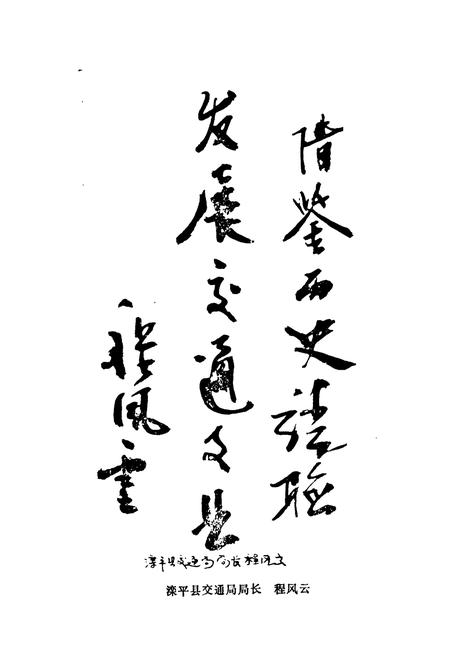 借鉴历史经验
发展交通业
程风雲
滦平县交通局局长程风云
滦平县交通局局长 程风云